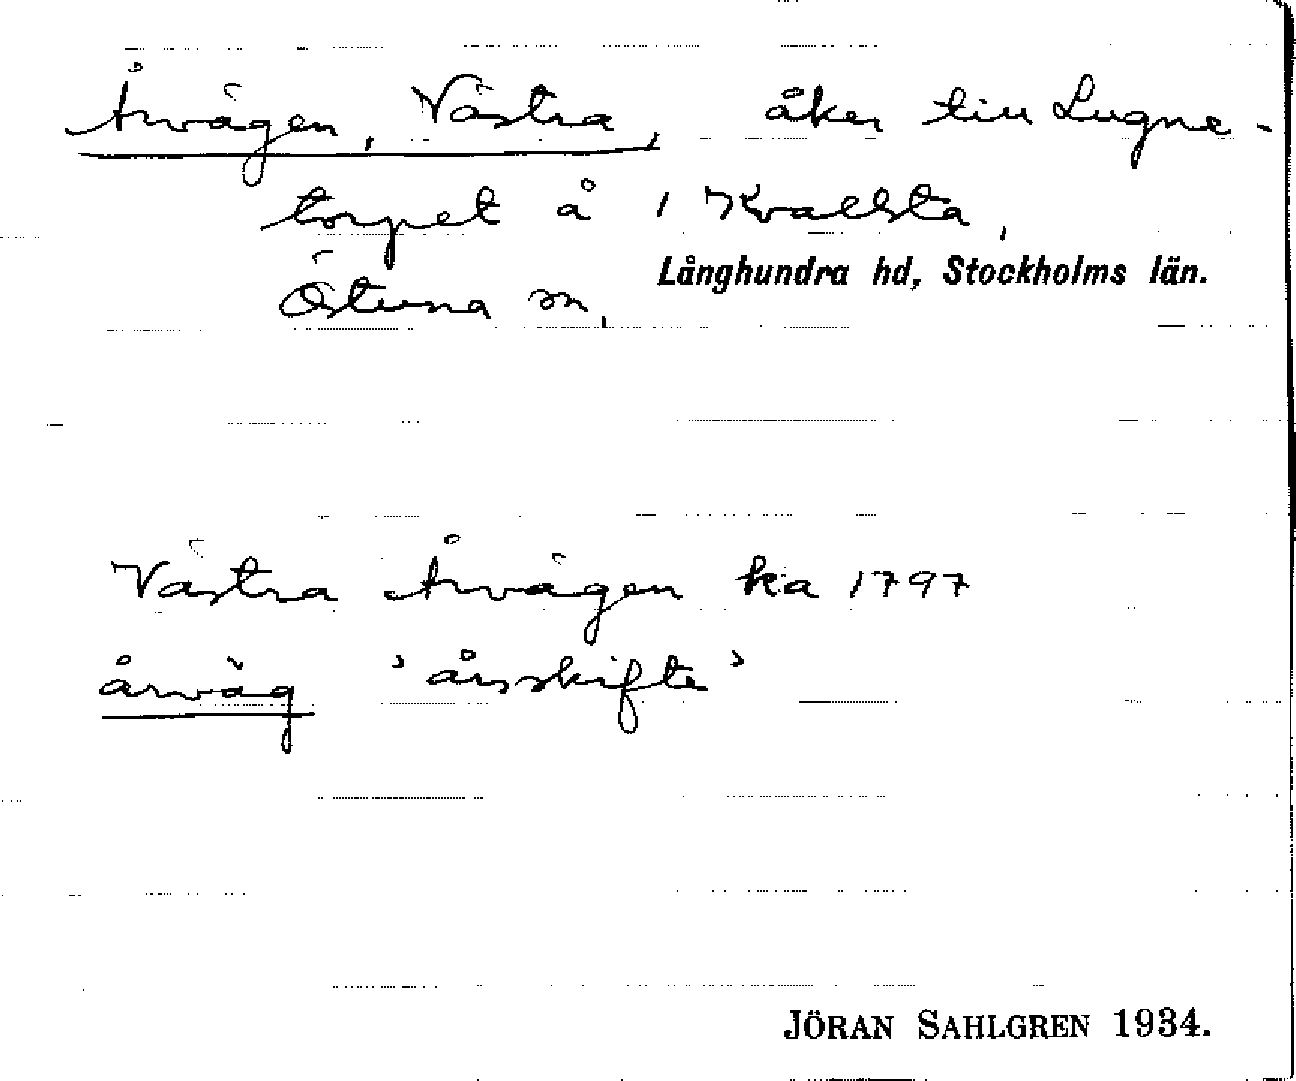 Årvägen, Västra, åker till Lugne-
torpet å 1 Kvallsta,
Östuna sn,
Långhundra hd, Stockholms län.
Västra Årvägen ka 1797
årväg 'årsskifte'
JÖRAN SAHLGREN 1934.